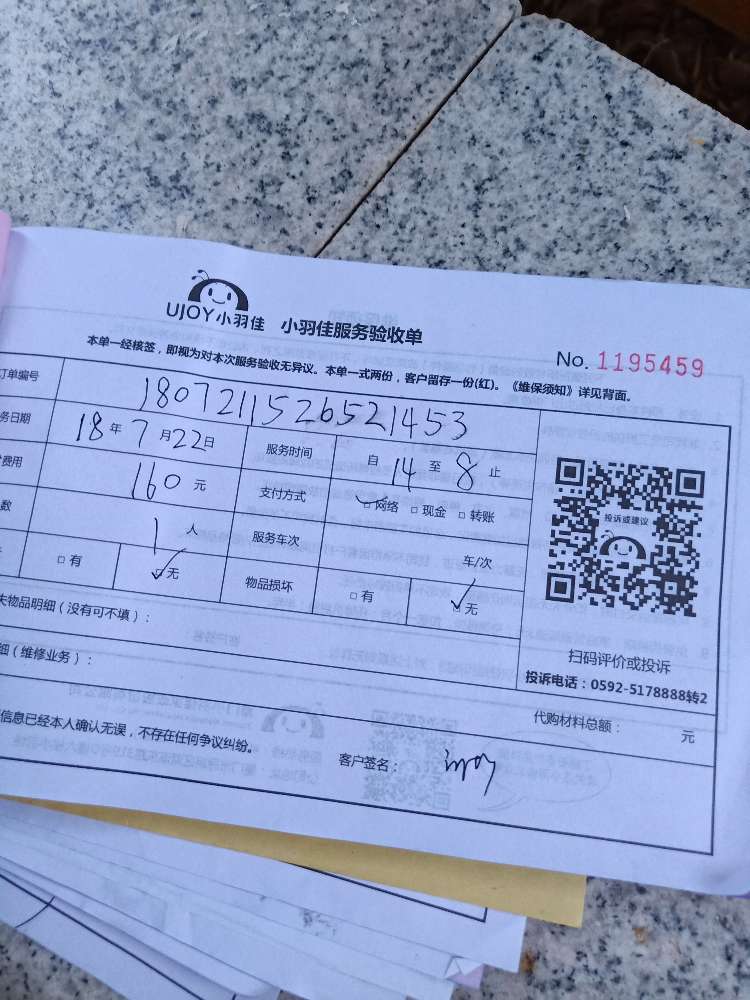 UJOY小羽佳 小羽佳服务验收单
本单一经核签，即视为对本次服务验收无异议。本单一式两份，客户留存一份(红)。《维保须知》详见背面。
No. 1195459
订单编号 1807211526521453
务日期 18年7月22日 服务时间 自14至8止
费用 160元 支付方式 □网络 □现金 □转账
数 1人 服务车次 车/次
□有 □无 物品损坏 □有 □无
投诉或建议
失物品明细（没有可不填）：
细（维修业务）：
扫码评价或投诉
投诉电话：0592-5178888转2
代购材料总额： 元
信息已经本人确认无误，不存在任何争议纠纷。 客户签名：